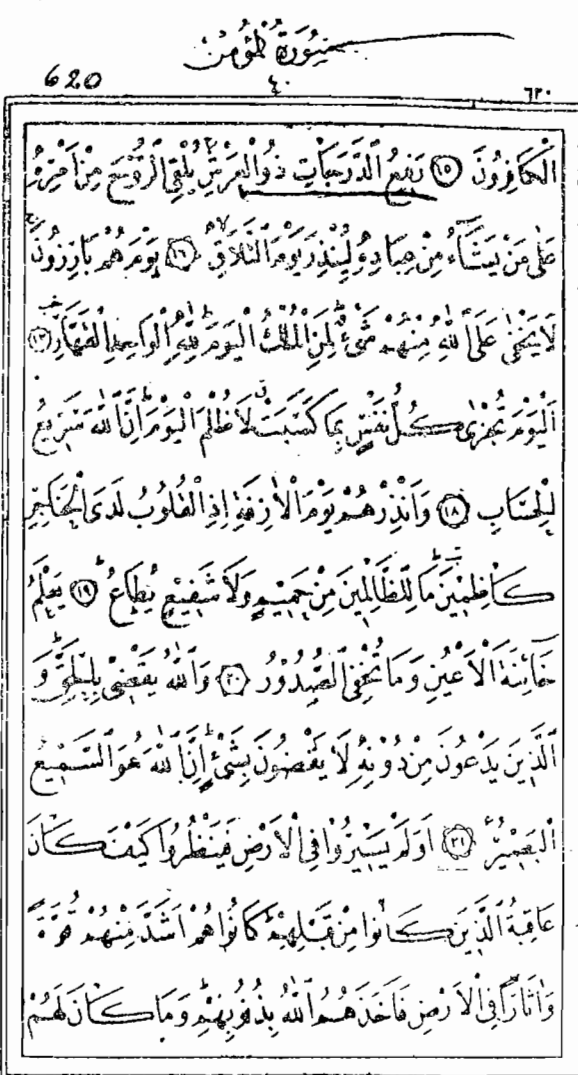 سورة المؤمن
620 ٤٠ ٦٢٠
الْكَافِرُونَ ﴿١٥﴾ رَفِيعُ الدَّرَجَاتِ ذُو الْعَرْشِ يُلْقِي الرُّوحَ مِنْ اَمْرِهِ
عَلٰى مَنْ يَشَٓاءُ مِنْ عِبَادِهِ لِيُنْذِرَ يَوْمَ التَّلَاقِ ﴿١٦﴾ يَوْمَ هُمْ بَارِزُونَ
لَا يَخْفٰى عَلَى اللّٰهِ مِنْهُمْ شَيْءٌ لِمَنِ الْمُلْكُ الْيَوْمَ لِلّٰهِ الْوَاحِدِ الْقَهَّارِ ﴿١٧﴾
اَلْيَوْمَ تُجْزٰى كُلُّ نَفْسٍ بِمَا كَسَبَتْ لَا ظُلْمَ الْيَوْمَ اِنَّ اللّٰهَ سَرِيعُ
الْحِسَابِ ﴿١٨﴾ وَاَنْذِرْهُمْ يَوْمَ الْاٰزِفَةِ اِذِ الْقُلُوبُ لَدَى الْحَنَاجِرِ
كَاظِمِينَ مَا لِلظَّالِمِينَ مِنْ حَمِيمٍ وَلَا شَفِيعٍ يُطَاعُ ﴿١٩﴾ يَعْلَمُ
خَٓائِنَةَ الْاَعْيُنِ وَمَا تُخْفِي الصُّدُورُ ﴿٢٠﴾ وَاللّٰهُ يَقْضِي بِالْحَقِّ وَ
الَّذِينَ يَدْعُونَ مِنْ دُونِهِ لَا يَقْضُونَ بِشَيْءٍ اِنَّ اللّٰهَ هُوَ السَّمِيعُ
الْبَصِيرُ ﴿٢١﴾ اَوَلَمْ يَسِيرُوا فِي الْاَرْضِ فَيَنْظُرُوا كَيْفَ كَانَ
عَاقِبَةُ الَّذِينَ كَانُوا مِنْ قَبْلِهِمْ كَانُوا هُمْ اَشَدَّ مِنْهُمْ قُوَّةً
وَاٰثَارًا فِي الْاَرْضِ فَاَخَذَهُمُ اللّٰهُ بِذُنُوبِهِمْ وَمَا كَانَ لَهُمْ